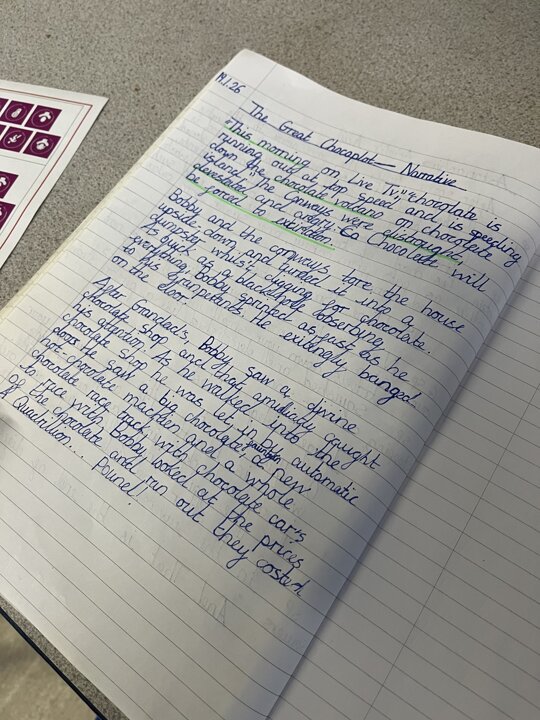 19.1.26
The Great Chocoplot Narrative
"This morning on Live Tv," "chocolate is
running out at top speed and is speeding
down the chocolate volcano on chocolate
island. The Conways were distraught,
devestated and angry. Chocolate will
be forced to extinction.
Bobby and the conways tore the house
upside down and turned it into a
whilst digging for chocolate.
As quick as a blackbird
everything, Bobby sprinted as just as he
to his grandparents. He exitingly banged
on the door.
After Grandad's, Bobby saw a divine
chocolate shop and that caught
his attention. As he walked into the
chocolate shop he was let in by automatic
doors. He saw a big chocolate fountain, a new
hot-chocolate machien and a whole
chocolate race track with chocolate car's
to race with. Bobby looked at the prices
of the chocolate and run out they costed
A Quadrillion... Pound!